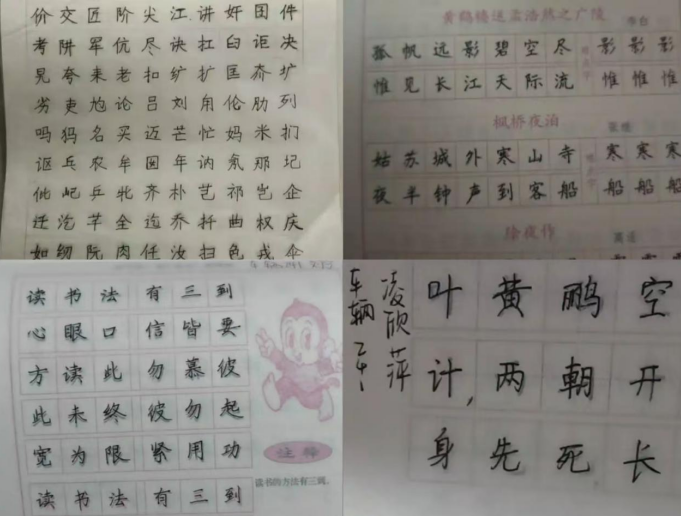 价交匠阶尖江讲奸因件
考阱军伉尽诀扛臼讵决
晃夸耒老扣纩扩匡夼圹
劣吏尥论吕刘甪伦肋列
吗犸名买迈芒忙妈米扪
讴乓农牟囡年讷氖那圮
仳屺乒牝齐朴艺祁岂企
迁汔芊全迄乔扦曲权庆
如纫阮肉任汝扫色戎伞
黄鹤楼送孟浩然之广陵
李白
孤帆远影碧空尽影影影
惟见长江天际流惟惟惟
枫桥夜泊
张继
姑苏城外寒山寺寒寒寒
夜半钟声到客船船船船
除夜作
高适
读书法有三到
心眼口信皆要
方读此勿慕彼
此未终彼勿起
宽为限紧用功
读书法有三到
注释
读书的方法有三到。
凌欣萍
车辆
叶黄鹂空
计,两朝开
身先死长